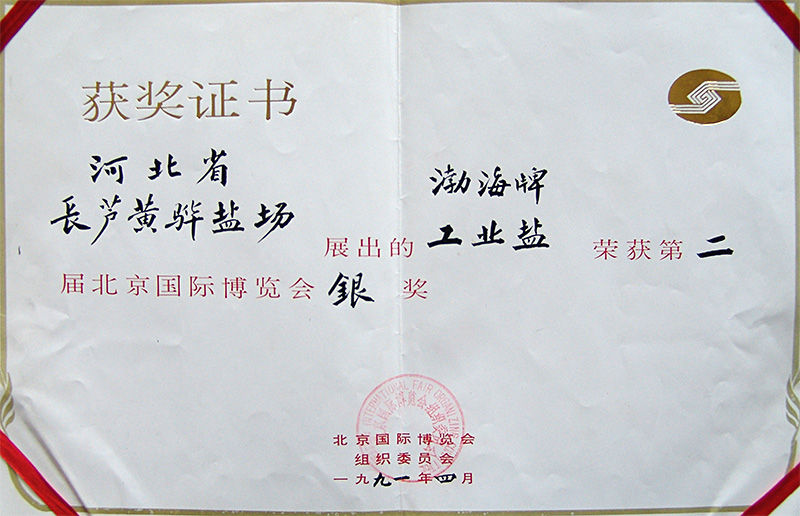 获奖证书
河北省
長芦黄骅盐场
展出的
渤海牌
工业盐
荣获第二
届北京国际博览会銀奖
INTERNATIONAL FAIR ORGANIZING
北京国际博览会
组织委员会
一九九一年四月